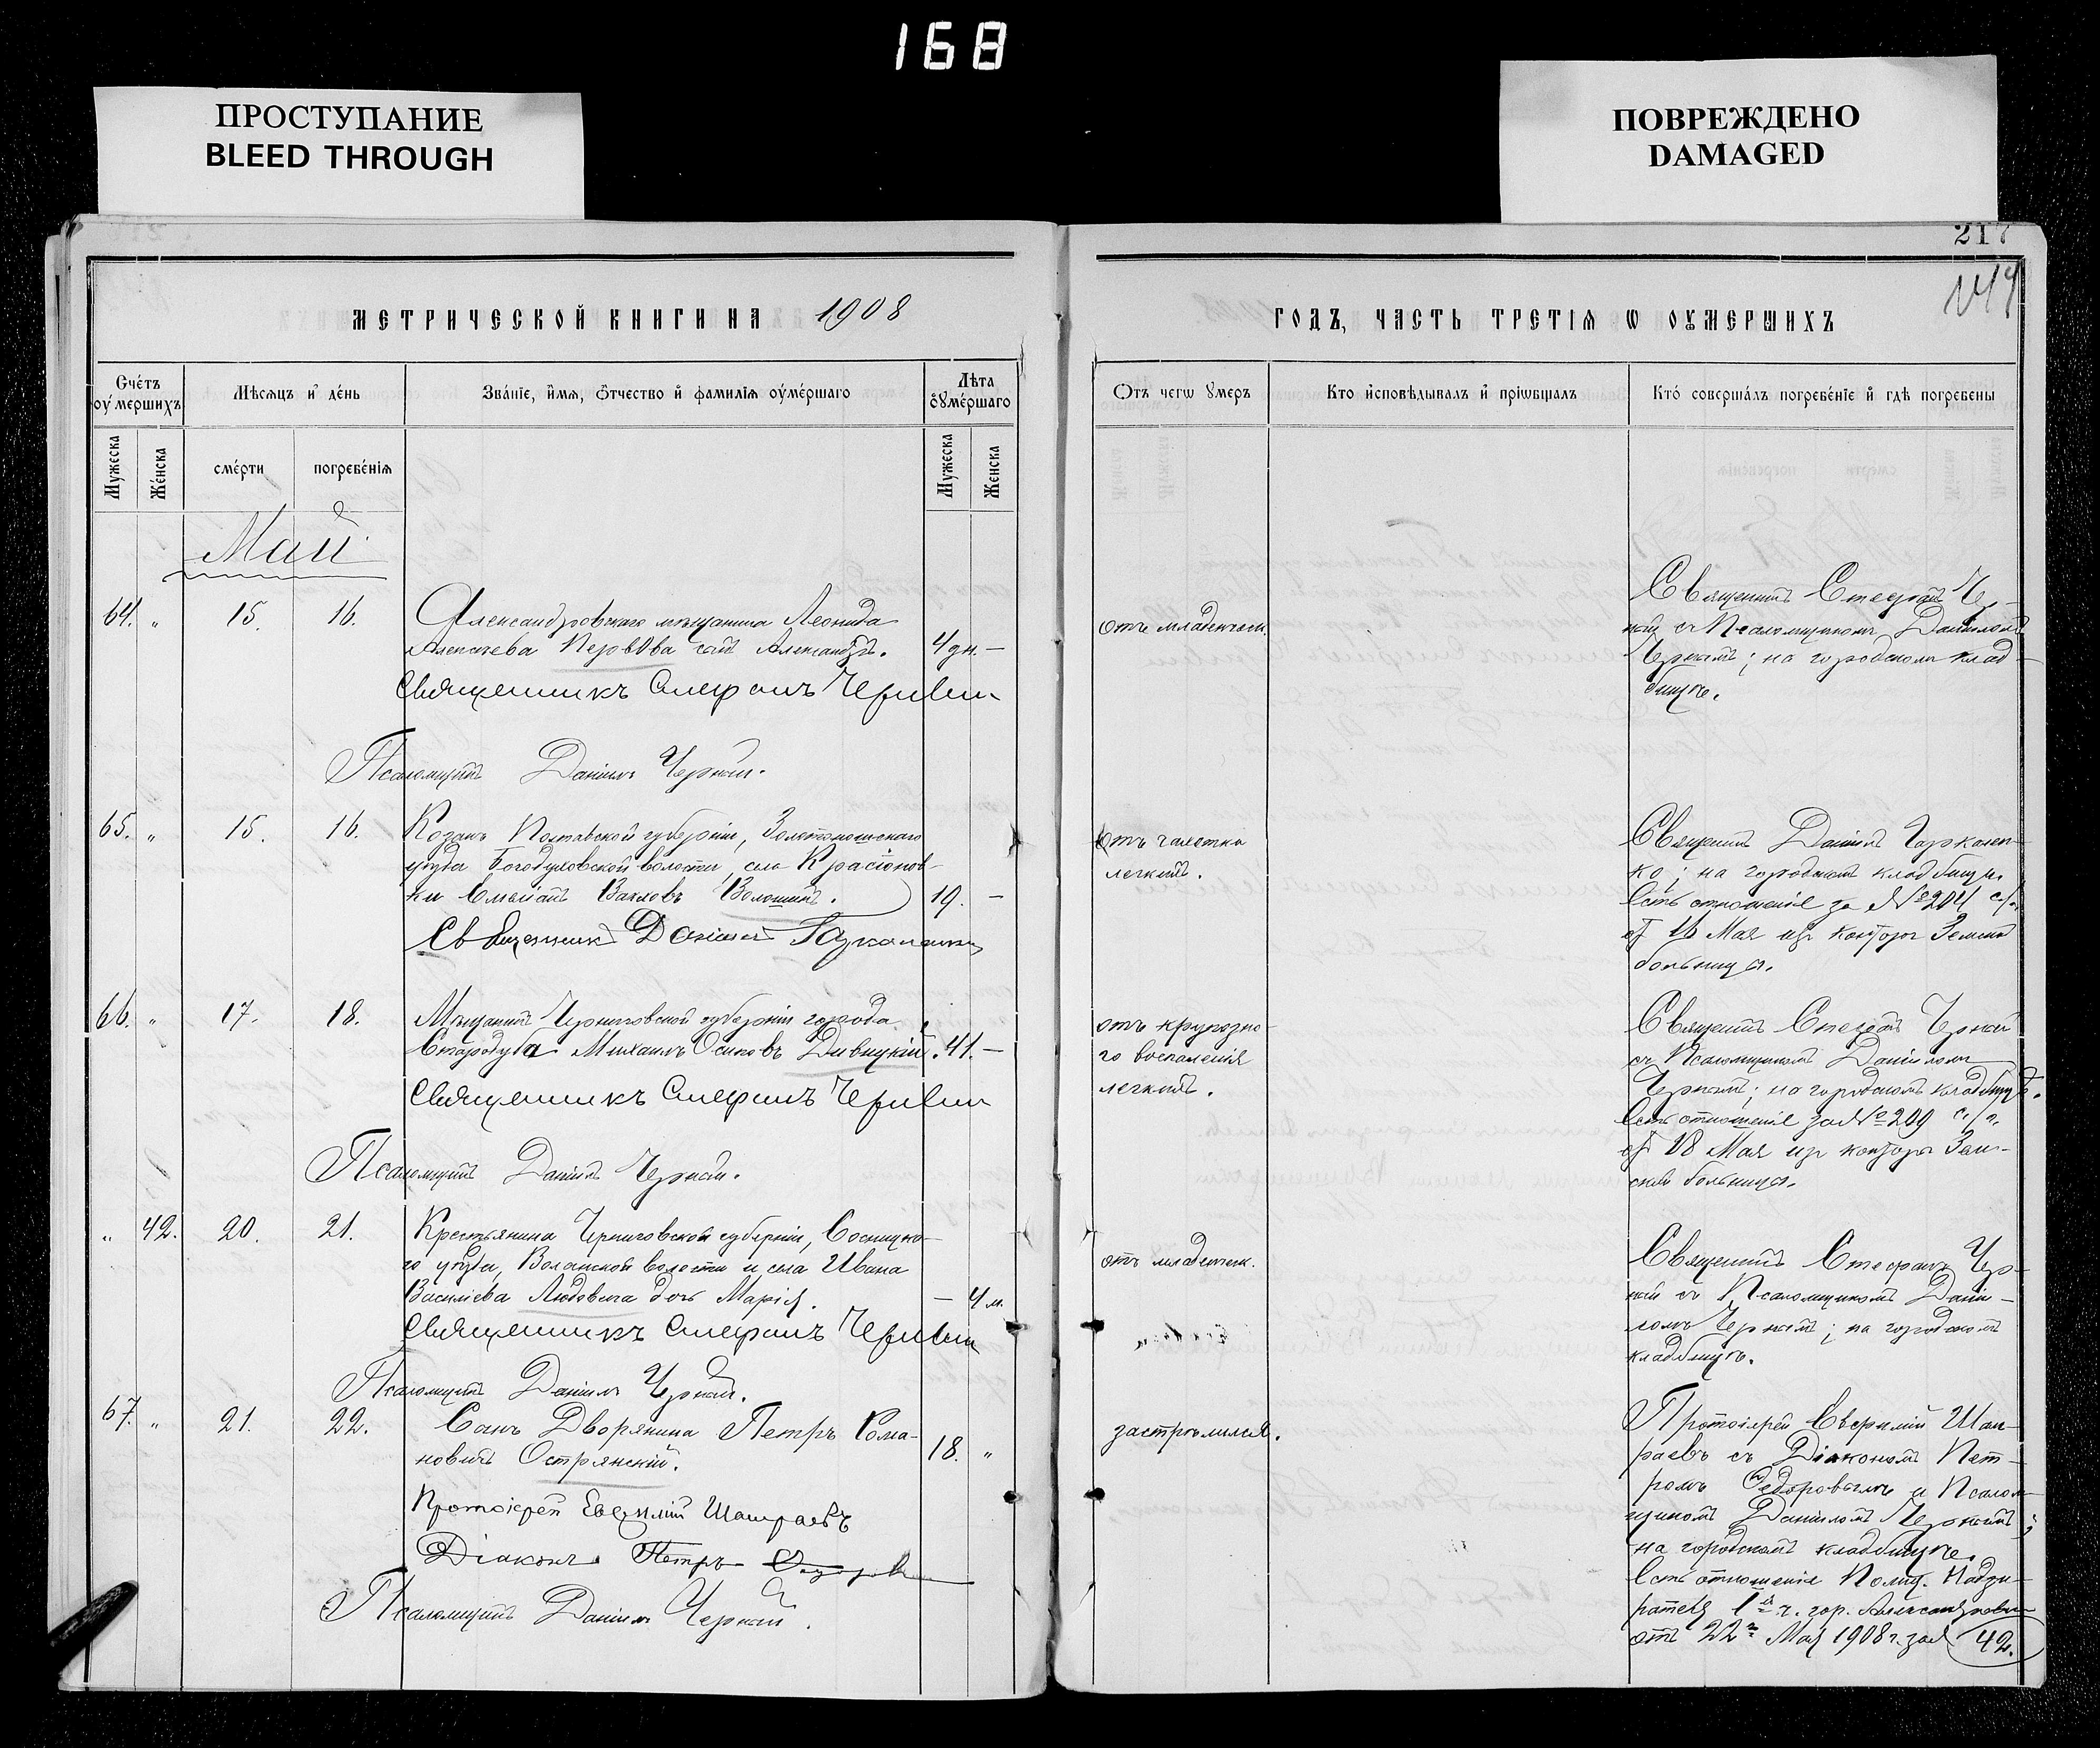 168
ПРОСТУПАНИЕ
BLEED THROUGH
ПОВРЕЖДЕНО
DAMAGED
217
МЕТРИЧЕСКОЙ КНИГИ НА 1908
ГОДЪ, ЧАСТЬ ТРЕТІЯ Ѡ ОУМЕРШИХЪ
Счетъ оумершихъ
Мѣсяцъ и день
Званіе, имя, ѿтчество и фамилія оумершаго
Лѣта оумершаго
Отъ чегѡ умеръ
Кто исповѣдывалъ и пріѡбщалъ
Кто совершалъ погребеніе и гдѣ погребены
Мужеска
Женска
смерти
погребенія
Мужеска
Женска
Май
64. „ 15. 16. Александровскаго мѣщанина Леонида
Алексѣева Першова сынъ Александръ. 4 дн. –
Священникъ Стефанъ Черный
Псаломщикъ Даніилъ Черный.
отъ младенческ.
Священникъ Стефанъ Чер-
ный съ Псаломщикомъ Даніиломъ
Чернымъ; на городскомъ клад-
бищѣ.
65. „ 15. 16. Козакъ Полтавской губерніи, Золотоношскаго
уѣзда Богодуховской волости, села Красіонов-
ки Вакховъ Волошинъ. 19. –
Священникъ Даніилъ
отъ чахотки
легкихъ.
Священникъ Даніилъ
ко; на городскомъ кладбищѣ.
Есть отношеніе за № 204 с/г.
отъ 16 Мая изъ конторы Земской
больницы.
66. „ 17. 18. Мѣщанинъ Черниговской губерніи города
Стародуба Михаилъ Осиповъ Дивицкій. 41. –
Священникъ Стефанъ Черный
Псаломщикъ Даніилъ Черный.
отъ крупозно-
го воспаленія
легкихъ.
Священникъ Стефанъ Черный
съ Псаломщикомъ Даніиломъ
Чернымъ; на городскомъ кладбищѣ.
Есть отношеніе за № 209 с/г.
отъ 18 Мая изъ конторы Зем-
ской больницы.
„ 42. 20. 21. Крестьянина Черниговской губерніи, Сосницка-
го уѣзда, Волынской волости и села Ивана
Василіева Людвига дочь Марія. – 4 м.
Священникъ Стефанъ Черный
Псаломщикъ Даніилъ Черный.
отъ младенческ.
Священникъ Стефанъ Чер-
ный съ Псаломщикомъ Дані-
ломъ Чернымъ; на городскомъ
кладбищѣ.
67. „ 21. 22. Сынъ Дворянина Петръ Рома-
новичъ Острянскій. 18. „
Протоіерей Евѳимій Шашраевъ
Діаконъ Петръ Ѳедоровъ
Псаломщикъ Даніилъ Черный.
застрѣлился.
Протоіерей Евѳимій Шаш-
раевъ съ Діакономъ Пет-
ромъ Ѳедоровымъ и Псалом-
щикомъ Даніиломъ Чернымъ;
на городскомъ кладбищѣ.
Есть отношеніе Полиц. Надзи-
рателя 1й ч. гор. Александровска
отъ 22го Мая 1908 г. за № 42.